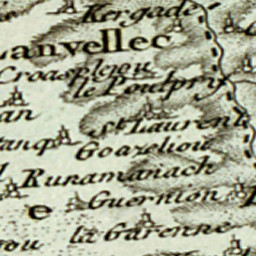 Kergade
Lanvellec
Croasplejou
le Poulpry
an
St Laurent
tanq
Goazeliou
Runamanach
Guernion
e
la Garenne
rou